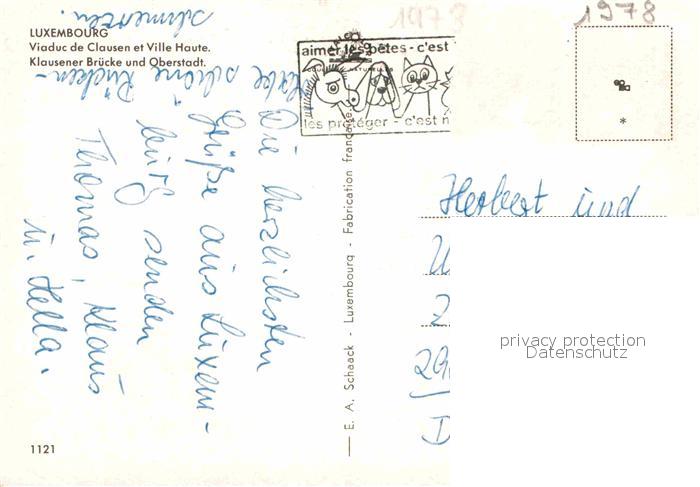 LUXEMBOURG
Viaduc de Clausen et Ville Haute.
Klausener Brücke und Oberstadt.
1973
1978
aimer les bêtes - c'est
les protéger - c'est
Die herzlichsten
Grüße aus Luxem-
burg senden
Thomas, Klaus
u. Hella.
Habe schöne Rücken-
schmerzen.
E. A. Schaack - Luxembourg - Fabrication française
Herbert und
29
D
privacy protection
Datenschutz
1121